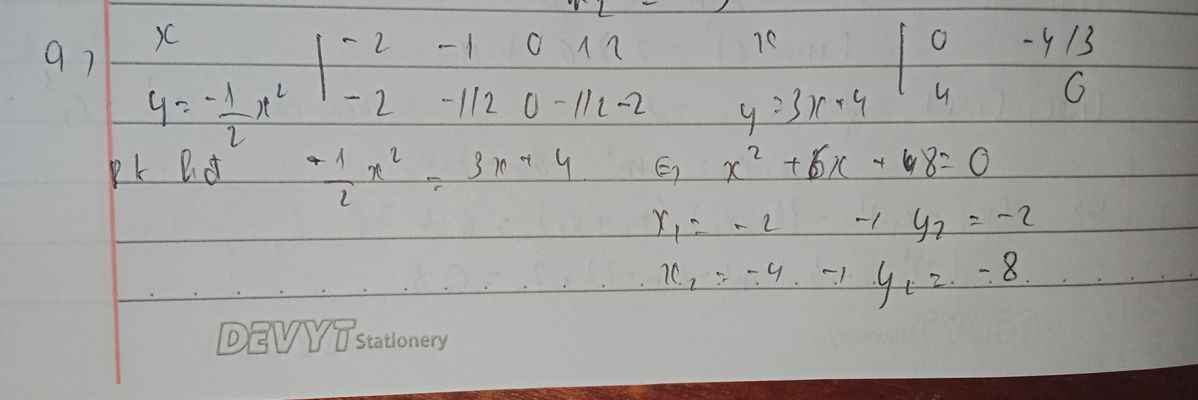 9, x | -2 -1 0 1 2 x | 0 -4/3
y = -1/2 x² | -2 -1/2 0 -1/2 -2 y = 3x+4 | 4 0
pt hđ -1/2 x² = 3x + 4 (=) x² + 6x + 8 = 0
x₁ = -2 → y₂ = -2
x₂ = -4 → y₁ = -8
DEVYT Stationery